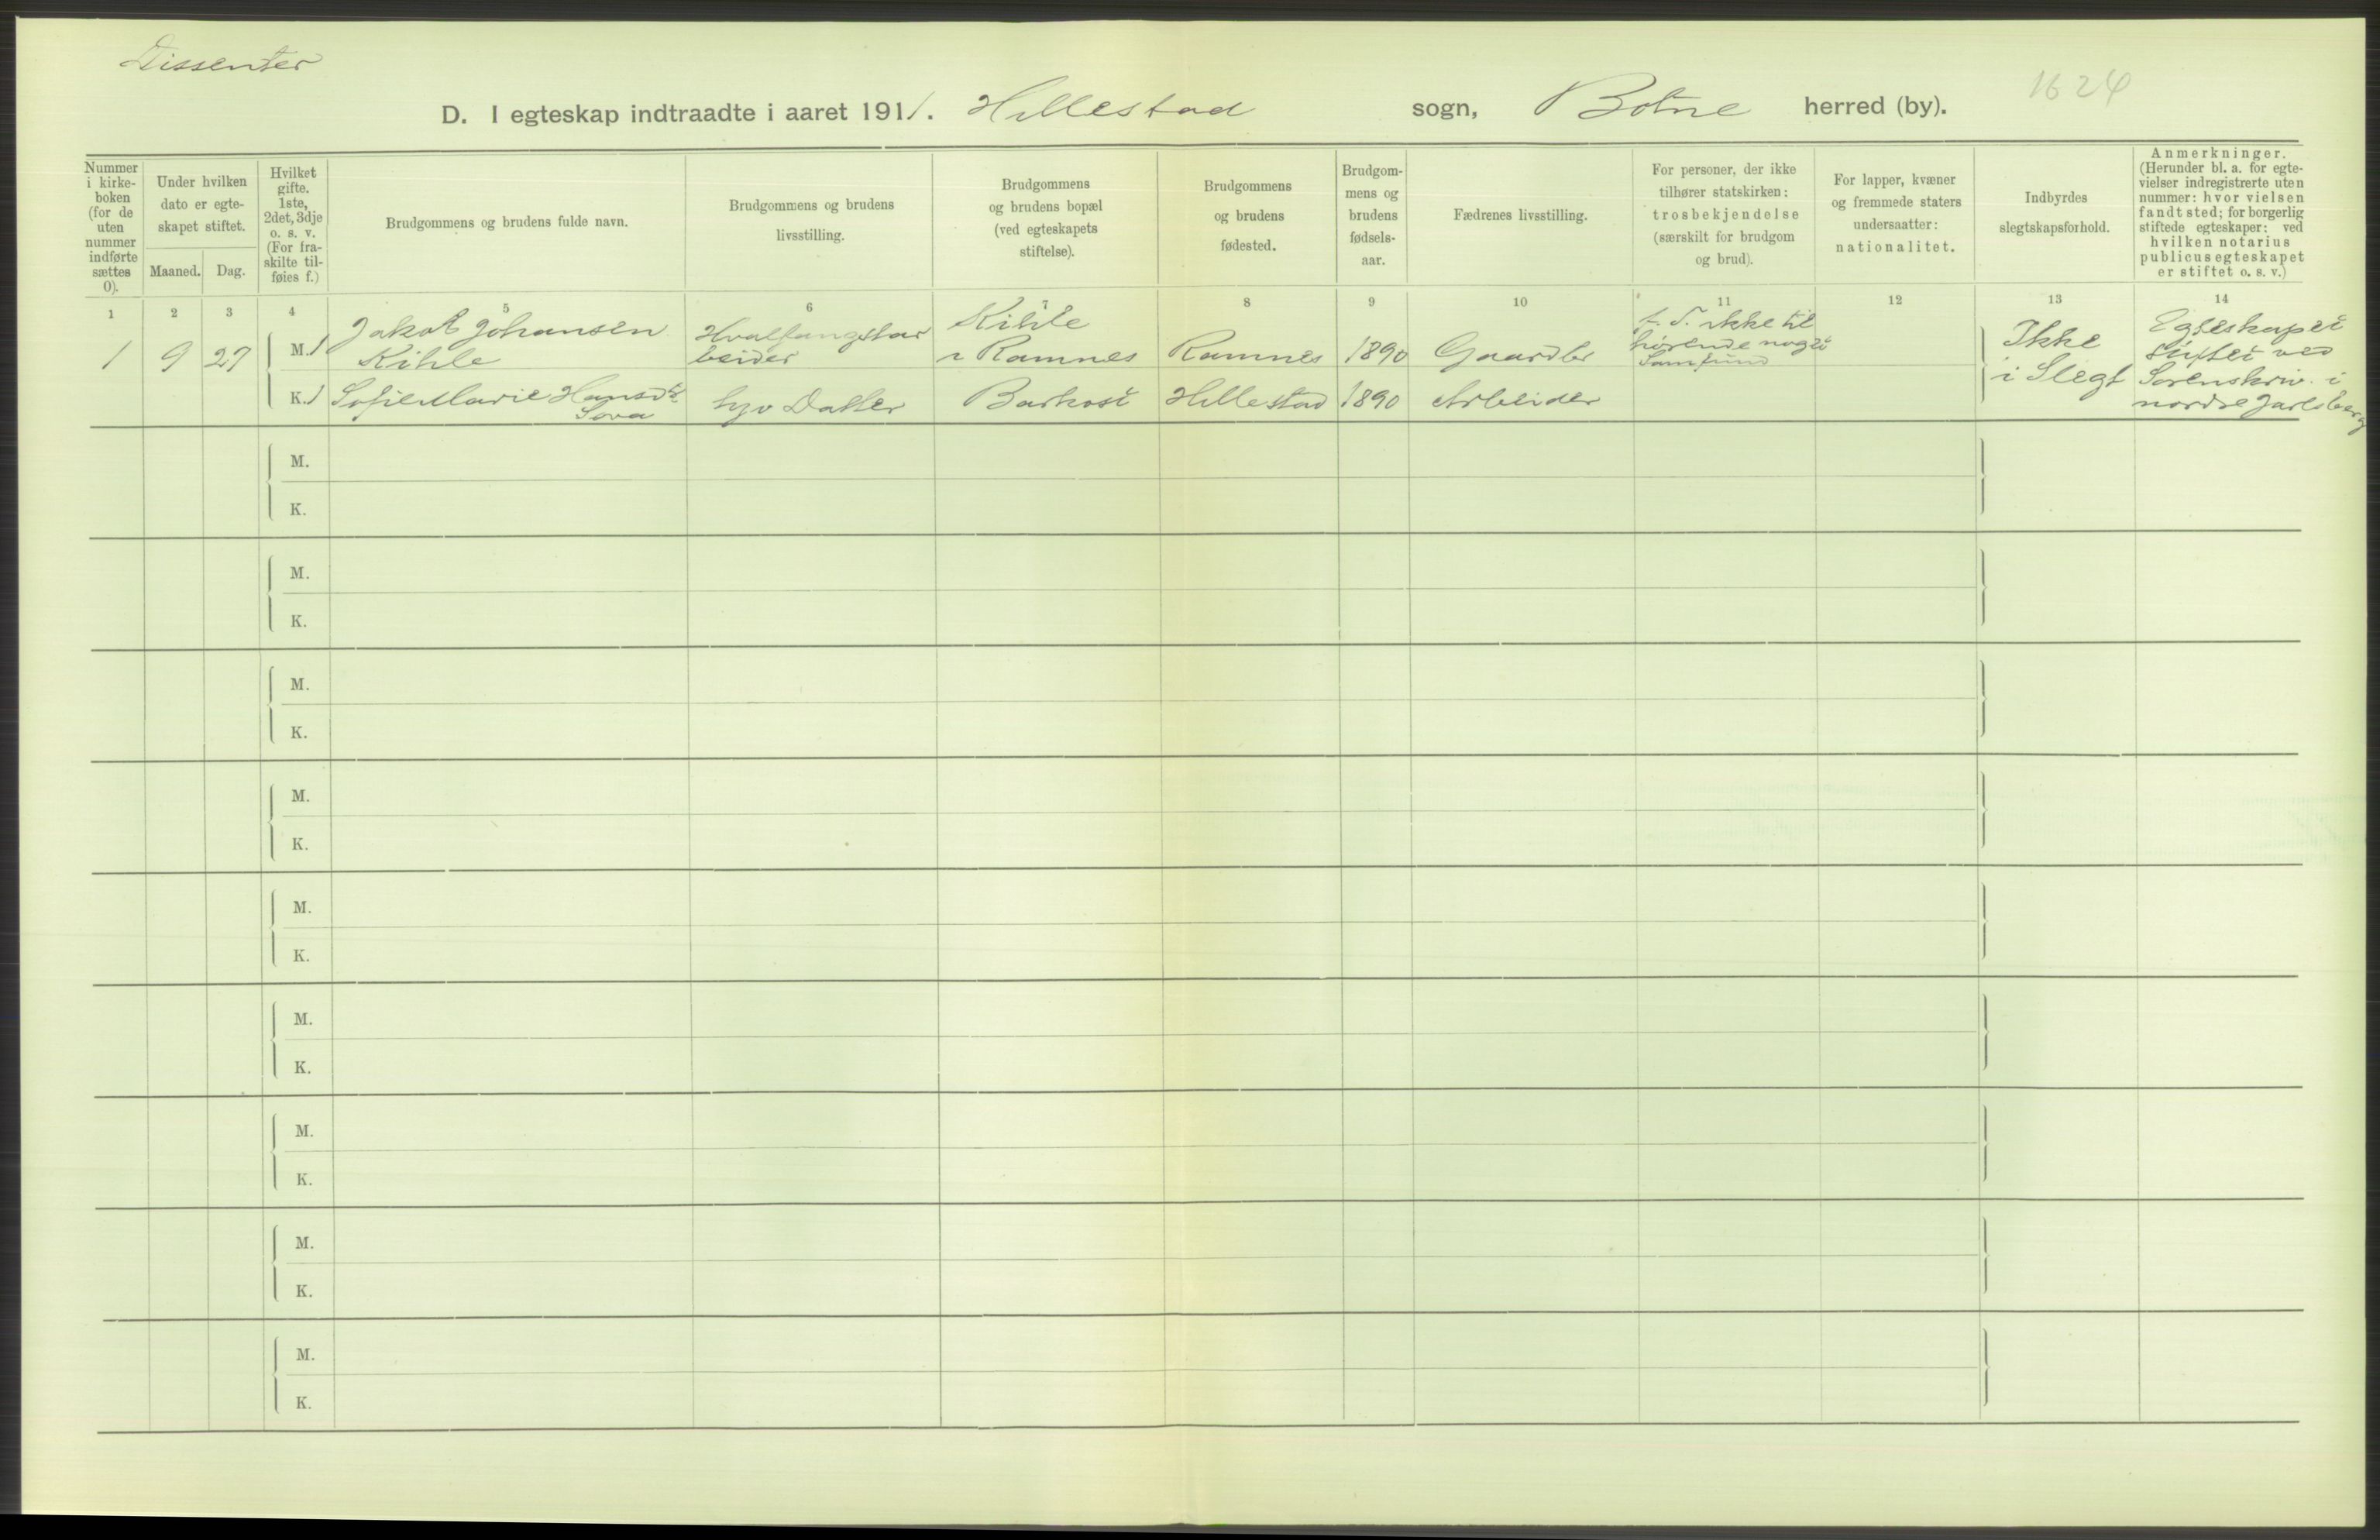 Dissenter
1624
D. I egteskap indtraadte i aaret 1911. Hillestad sogn, Botne herred (by).
Nummer
i kirke-
boken
(for de
uten
nummer
indførte
sættes
0).
Under hvilken
dato er egte-
skapet stiftet.
Maaned. Dag.
Hvilket
gifte.
1ste,
2det, 3dje
o. s. v.
(For fra-
skilte til-
føies f.)
Brudgommens og brudens fulde navn.
Brudgommens og brudens
livsstilling.
Brudgommens
og brudens bopæl
(ved egteskapets
stiftelse).
Brudgommens
og brudens
fødested.
Brudgom-
mens og
brudens
fødsels-
aar.
Fædrenes livsstilling.
For personer, der ikke
tilhører statskirken:
trosbekjendelse
(særskilt for brudgom
og brud).
For lapper, kvæner
og fremmede staters
undersaatter:
nationalitet.
Indbyrdes
slegtskapsforhold.
Anmerkninger.
(Herunder bl. a. for egte-
vielser indregistrerte uten
nummer: hvor vielsen
fandt sted; for borgerlig
stiftede egteskaper: ved
hvilken notarius
publicus egteskapet
er stiftet o. s. v.)
1 2 3 4 5 6 7 8 9 10 11 12 13 14
1 9 27
M. 1
Jakob Johansen
Kihle
Hvalfangstar
beider
Kihle
i Ramnes
Ramnes
1890
Gaardbr
ikke til
hørende noget
Samfund
K. 1
Sofie Marie Hansdt
Sova
hjv Datter
Barkost
Hillestad
1890
Arbeider
Ikke
i Slegt
Egteskapet
stiftet ved
Sorenskriv. i
nordre Jarlsberg
M.
K.
M.
K.
M.
K.
M.
K.
M.
K.
M.
K.
M.
K.
M.
K.
M.
K.